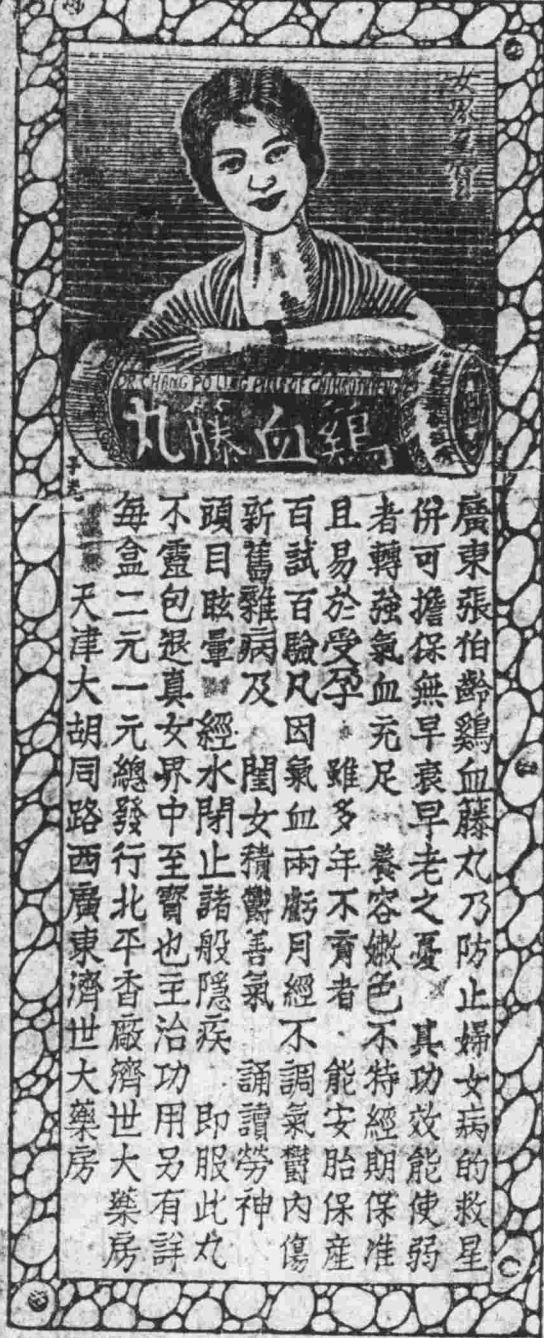 女界至寶
DR. CHANG PO LING PILLS OF
鷄血籐丸
子光
廣東張伯齡鷄血籐丸乃防止婦女病的救星
併可擔保無早衰早老之憂 其功效能使弱
者轉強氣血充足 養容嫩色不特經期保准
且易於受孕 雖多年不育者 能安胎保産
百試百驗凡因氣血兩虧月經不調氣鬱內傷
新舊雜病及 閨女積鬱善氣 誦讀勞神
頭目眩暈 經水閉止諸般隱疾 即服此丸
不靈包退真女界中至寳也主治功用另有詳
每盒二元一元總發行北平香厰濟世大藥房
天津大胡同路西廣東濟世大藥房